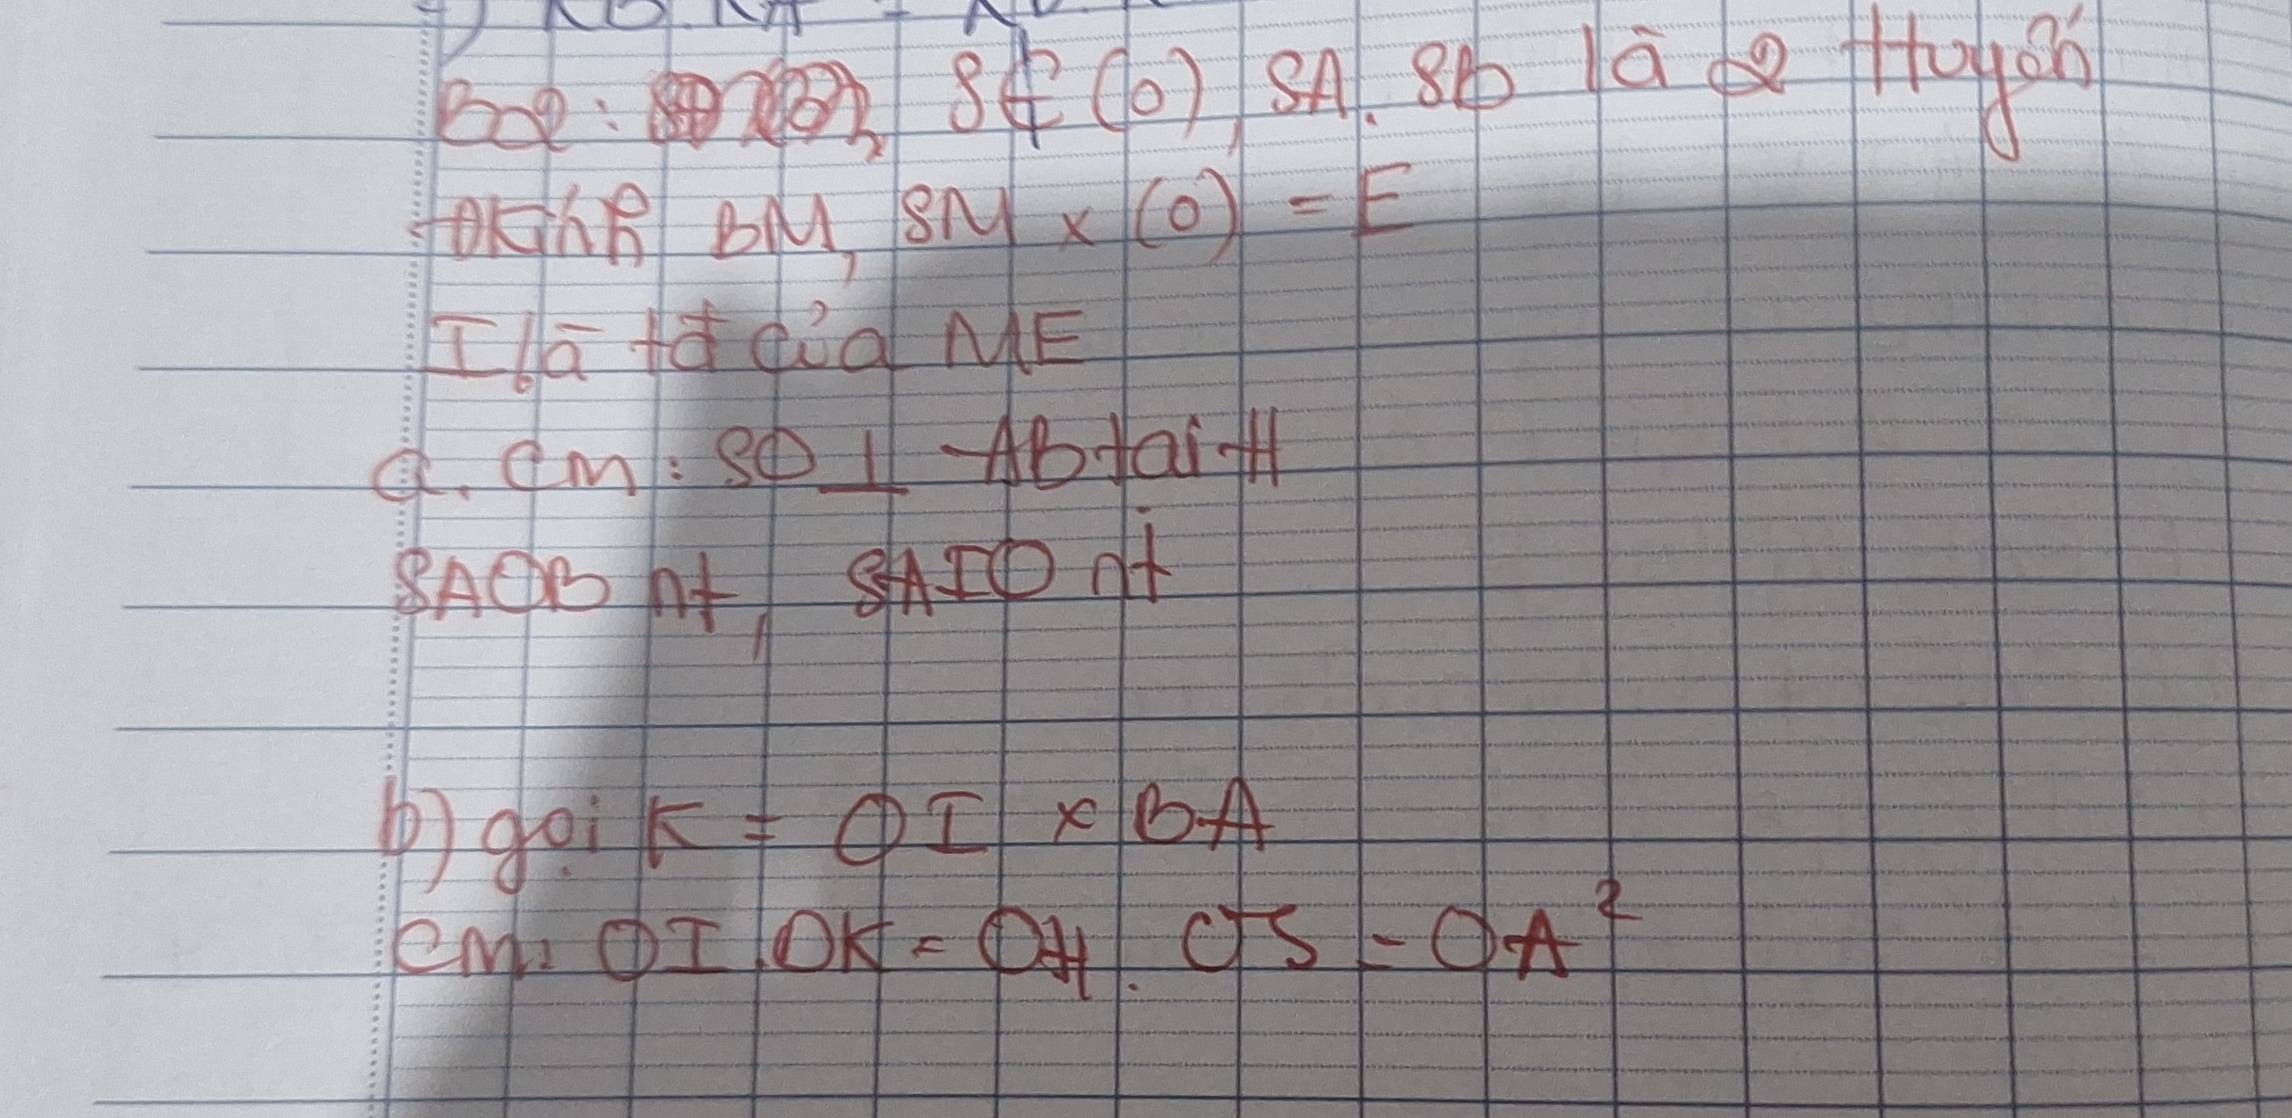 B2: S ∉ (O), SA, SB là 2 ttuyến
đkính BM, SM x (O) = E
I là tđ của ME
a. Cm: SO ⊥ AB tại H
SAOB nt, SAIO nt
b) gọi K = OI x BA
Cm: OI.OK = OH.OS = OA²